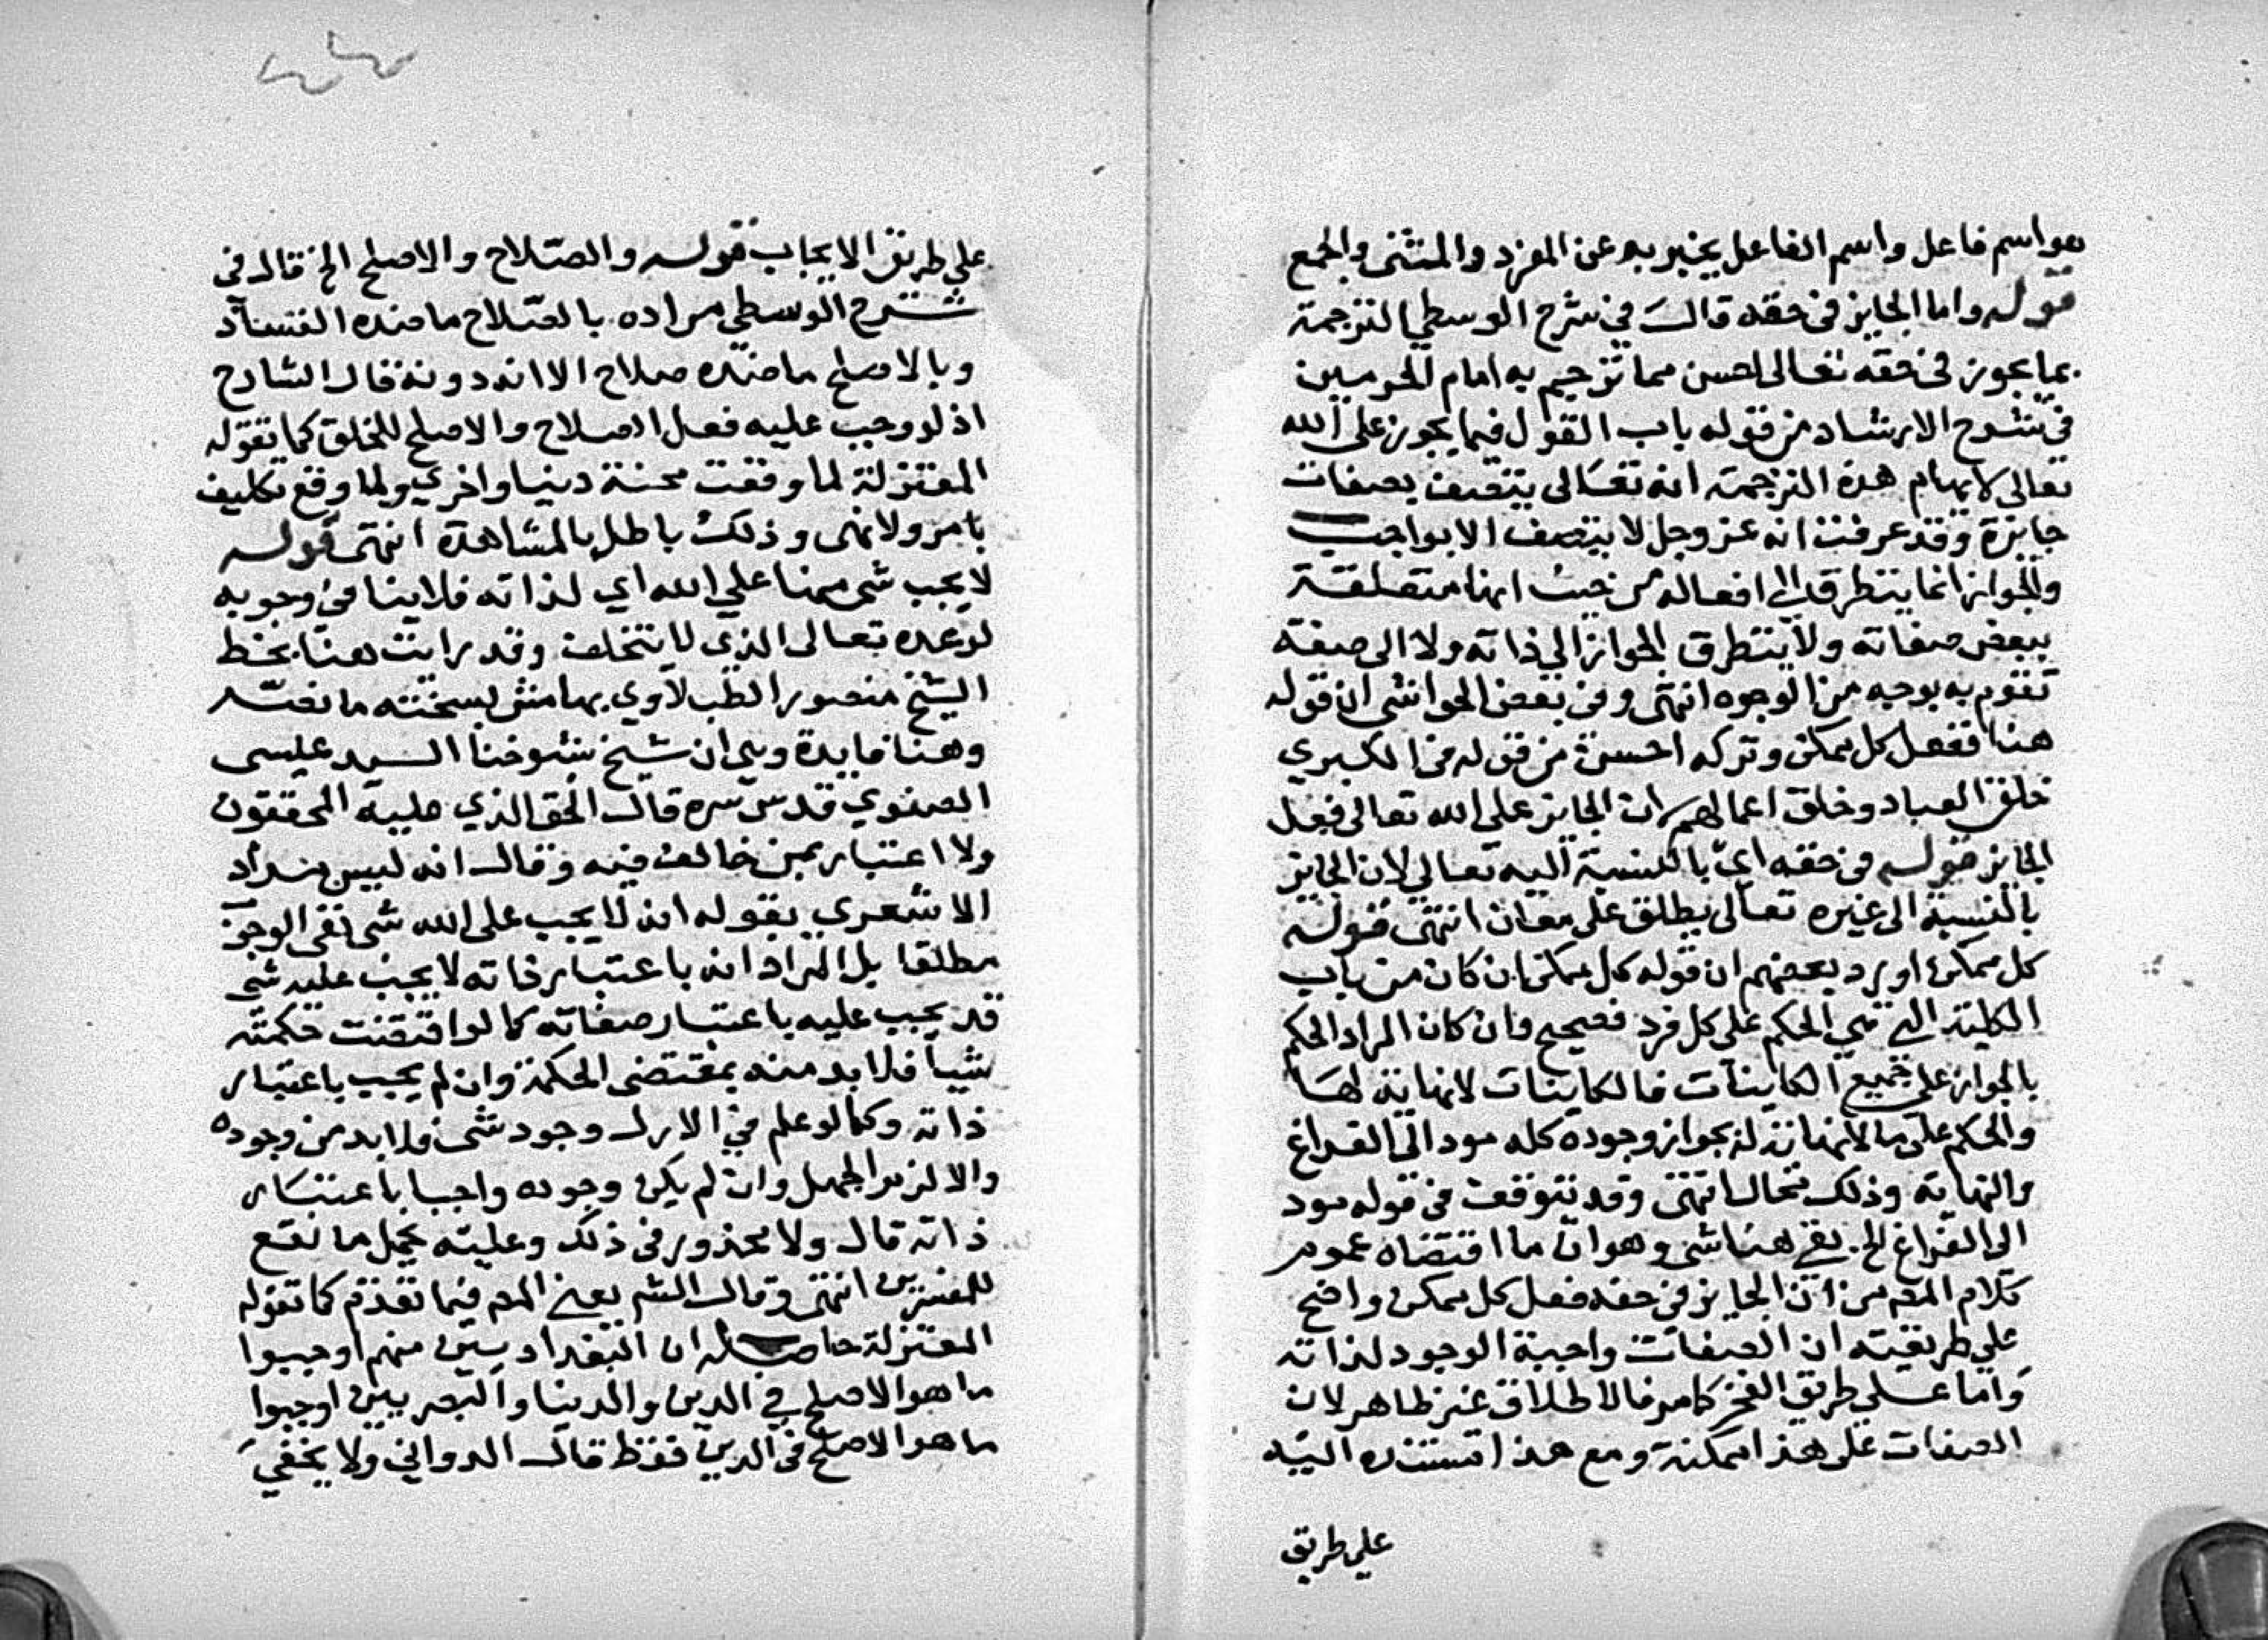 هو اسم فاعل واسم الفاعل يخبر به عن المفرد والمثنى والجمع
قوله واما الجايز في حقه قال في شرح الوسطي الترجمة
بما يجوز في حقه تعالى احسن مما ترجم به امام الحرمين
في شرح الارشاد من قوله باب القول فيما يجوز على الله
تعالى لايهام هذه الترجمة انه تعالى يتصف بصفات
جايزة وقد عرفت انه عز وجل لا يتصف الا بواجب
والجواز انما يتطرق الى افعاله من حيث انها متعلقة
ببعض صفاته ولا يتطرق الجواز الي ذاته ولا الى صفة
تقوم به بوجه من الوجوه انتهى وفي بعض الحواشي ان قوله
هنا ففعل كل ممكن وتركه احسن من قوله في الكبري
خلق العباد وخلق اعمالهم ان الجايز على الله تعالى فعل
الجايز قوله في حقه اي بالنسبة اليه تعالى لان الجايز
بالنسبة الى غيره تعالى يطلق على معان انتهى قوله
كل ممكن اورد بعضهم ان قوله كل ممكن ان كان من باب
الكلية التي هي الحكم على كل فرد فصحيح وان كان المراد الحكم
بالجواز على جميع الكاينات فالكاينات لا نهاية لها
والحكم على ما لا نهاية له بجواز وجوده كله مود الى الفراغ
والنهاية وذلك محال انتهى وقد نتوقف في قوله مود
الى الفراغ الخ بقي هنا شي وهو ان ما اقتضاه عموم
كلام المص من ان الجايز في حقه فعل كل ممكن واضح
على طريقته ان الصفات واجبة الوجود لذاته
واما على طريق الفخر كامر فالاطلاق غير ظاهر لان
الصفات على هذا ممكنة ومع هذا تستند اليه
علي طريق
علي طريق الايجاب قوله والصلاح والاصلح الخ قال في
شرح الوسطي مراده بالصلاح ما ضده الفساد
وبالاصلح ما ضده صلاح الا انه دونه قال الشارح
اذ لو وجب عليه فعل الصلاح والاصلح للخلق كما تقوله
المعتزلة لما وقعت محنة دنيا واخري ولما وقع تكليف
بامر ولا نهى وذلك باطل بالمشاهدة انتهى قوله
لا يجب شي منها علي الله اي لذاته فلا ينافي وجوبه
لوعده تعالى الذي لا يتخلف وقد رايت هنا بخط
الشيخ منصور الطبلاوي بهامش نسخته ما نصه
وهنا فايدة وهي ان شيخ شيوخنا السيد عيسى
الصفوي قدس سره قال الحق الذي عليه المحققون
ولا اعتبار بمن خالف فيه وقال انه ليس مراد
الاشعري بقوله انه لا يجب على الله شي نفى الوجوب
مطلقا بل المراد انه باعتبار ذاته لا يجب عليه شي
قد يجب عليه باعتبار صفاته كما لو اقتضت حكمته
شيا فلا بد منه بمقتضى الحكمة وان لم يجب باعتبار
ذاته وكما لو علم في الازل وجود شي فلا بد من وجوده
والا لزم الجهل وان لم يكن وجوده واجبا باعتبار
ذاته قال ولا محذور في ذلك وعليه يحمل ما نقع
للمفسرين انتهى وقال الش يعني المص فيما تقدم كما تقوله
المعتزلة حاصله ان البغداديين منهم اوجبوا
ما هو الاصلح في الدين والدنيا والبصريين اوجبوا
ما هو الاصلح في الدين فقط قال الدواني ولا يخفي